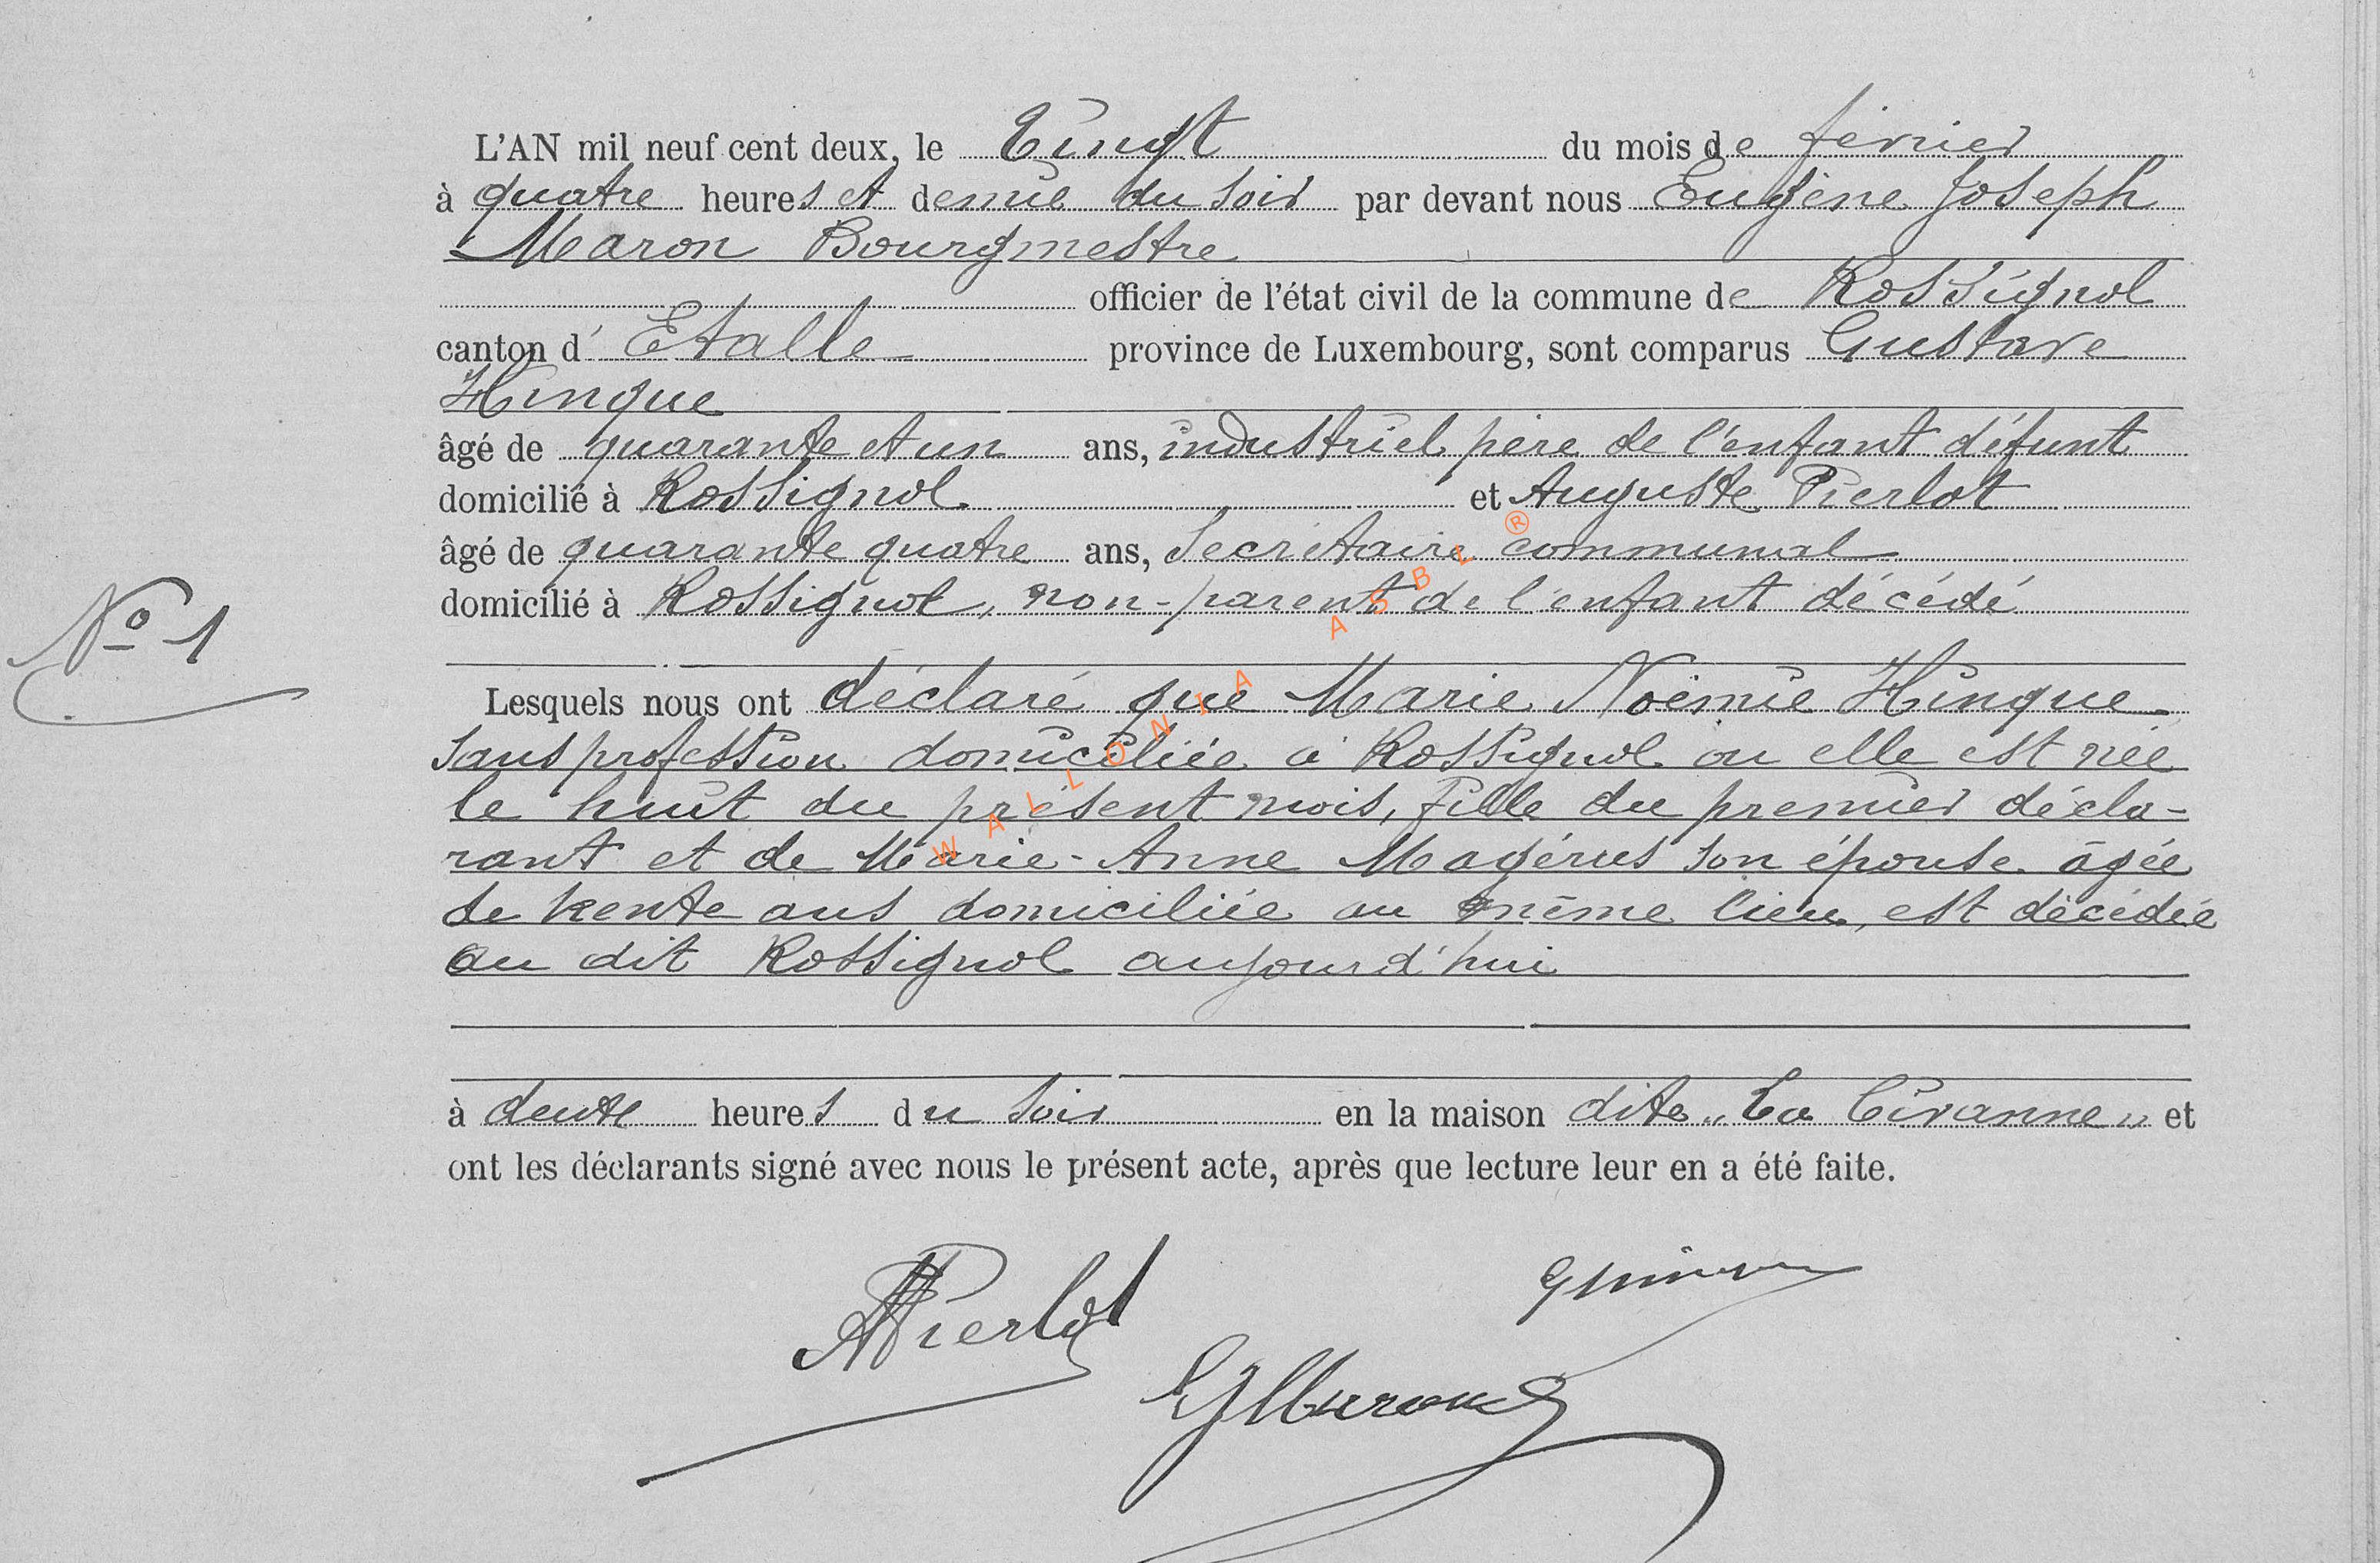 L'AN mil neuf cent deux, le Vingt du mois de février
à quatre heures et demie du soir par devant nous Eugène Joseph
Maron Bourgmestre
officier de l'état civil de la commune de Rossignol
canton d' Etalle province de Luxembourg, sont comparus Gustave
Hinque
âgé de quarante et un ans, industriel père de l'enfant défunt
domicilié à Rossignol et Auguste Pierlot
âgé de quarante quatre ans, Secrétaire communal
domicilié à Rossignol, non-parent de l'enfant décédé
N° 1
Lesquels nous ont déclaré que Marie Noémie Hinque
sans profession domiciliée à Rossignol ou elle est née
le huit du présent mois, fille du premier décla-
rant et de Marie-Anne Magérus son épouse âgée
de trente ans domiciliée au même lieu, est décédée
au dit Rossignol aujourd'hui
à deux heures du soir en la maison dite „La Civanne" et
ont les déclarants signé avec nous le présent acte, après que lecture leur en a été faite.
APierlot
EJMaron
WALLONIA ASBL ®